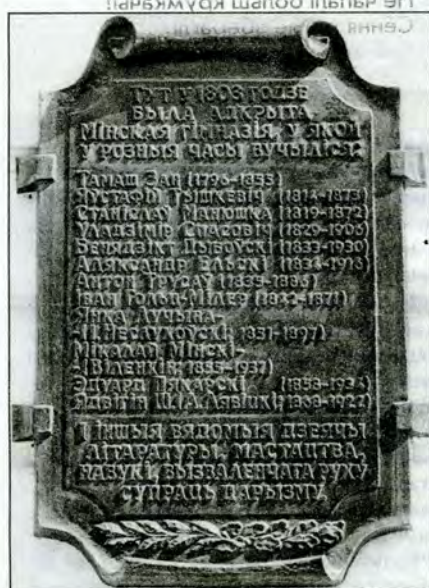 ТУТ У 1803 ГОДЗЕ
БЫЛА АДКРЫТА
МІНСКАЯ ГІМНАЗІЯ, У ЯКОЙ
У РОЗНЫЯ ЧАСЫ ВУЧЫЛІСЯ:
ТАМАШ ЗАН (1796-1855)
ЯУСТАФІЙ ТЫШКЕВІЧ (1814-1873)
СТАНІСЛАЎ МАНЮШКА (1819-1872)
УЛАДЗІМІР СПАСОВІЧ (1829-1906)
БЕНЯДЗІКТ ДЫБОЎСКІ (1833-1930)
АЛЯКСАНДР ЕЛЬСКІ (1834-1916)
АНТОН ТРУСАЎ (1835-1886)
ІВАН ГОЛЬЦ-МІЛЕР (1842-1871)
ЯНКА ЛУЧЫНА-
-(І. НЕСЛУХОЎСКІ; 1851-1897)
МІКАЛАЙ МІНСКІ-
-(ВІЛЕНКІН; 1855-1937)
ЭДУАРД ПЯКАРСКІ (1858-1934)
ЯДВІГІН Ш. (А. ЛЯВІЦКІ; 1868-1922)
І ІНШЫЯ ВЯДОМЫЯ ДЗЕЯЧЫ
ЛІТАРАТУРЫ, МАСТАЦТВА,
НАВУКІ, ВЫЗВАЛЕНЧАГА РУХУ
СУПРАЦЬ ЦАРЫЗМУ.